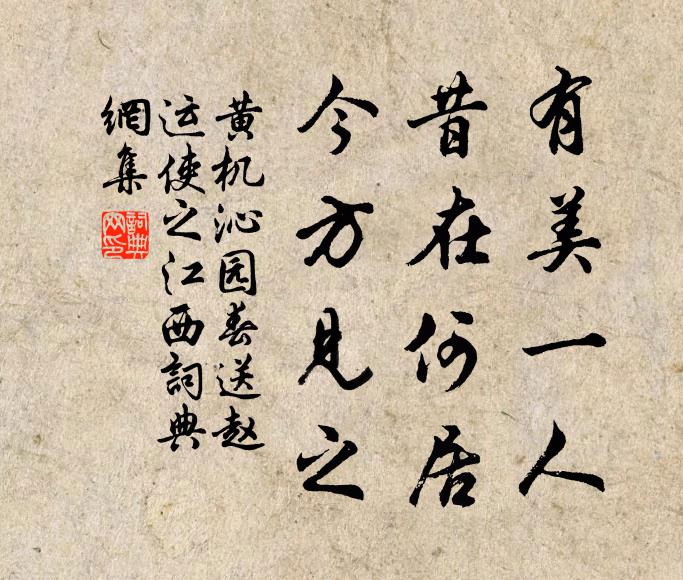 有美一人
昔在何居
今方见之
黄机沁园春送赵
运使之江西詞典
網集
詞典
网印